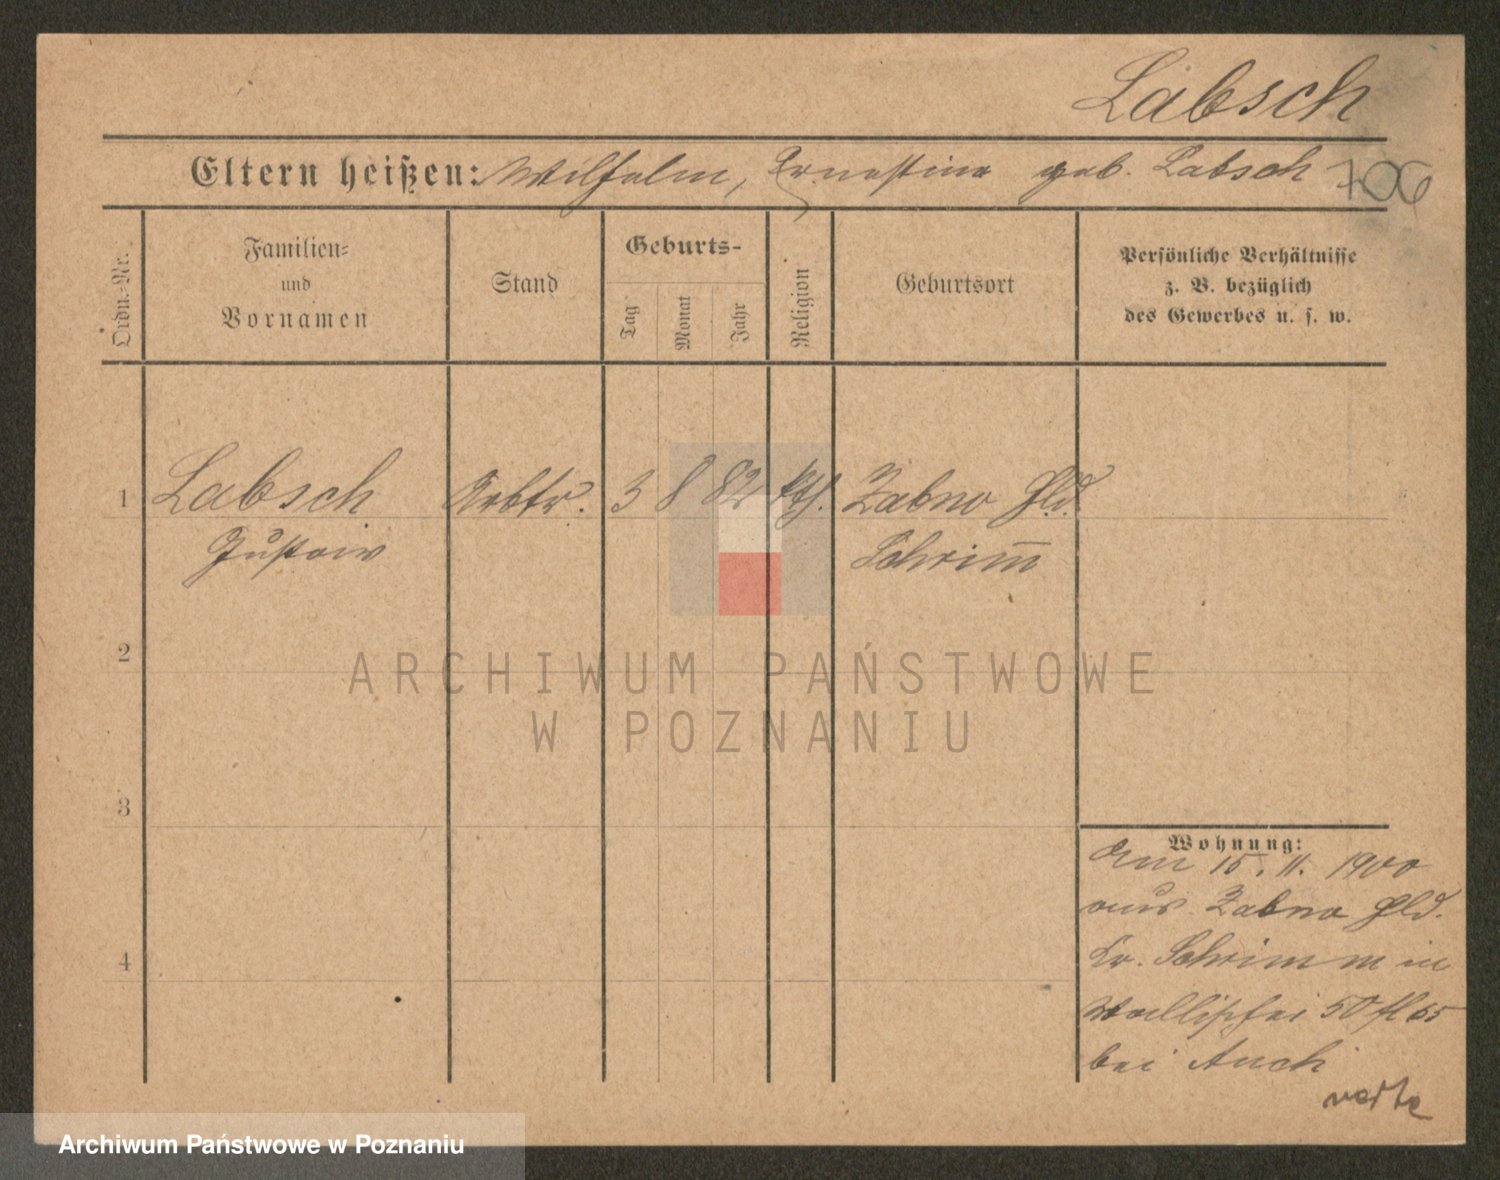 Labsch
Eltern heißen: Wilhelm, Ernestine geb. Labsch 706
Ordn.-Nr.
Familien-
und
Vornamen
Stand
Geburts-
Tag
Monat
Jahr
Religion
Geburtsort
Persönliche Verhältnisse
z. B. bezüglich
des Gewerbes u. s. w.
1 Labsch Arbtr. 3 8 82 kth. Zabno Hld.
Gustav Schrim̅
2
ARCHIWUM PAŃSTWOWE
W POZNANIU
3
Wohnung:
Am 15. 11. 1900
aus Zabno Hld.
4
Kr. Schrimm in
Wallischei 50
bei
verte
Archiwum Państwowe w Poznaniu